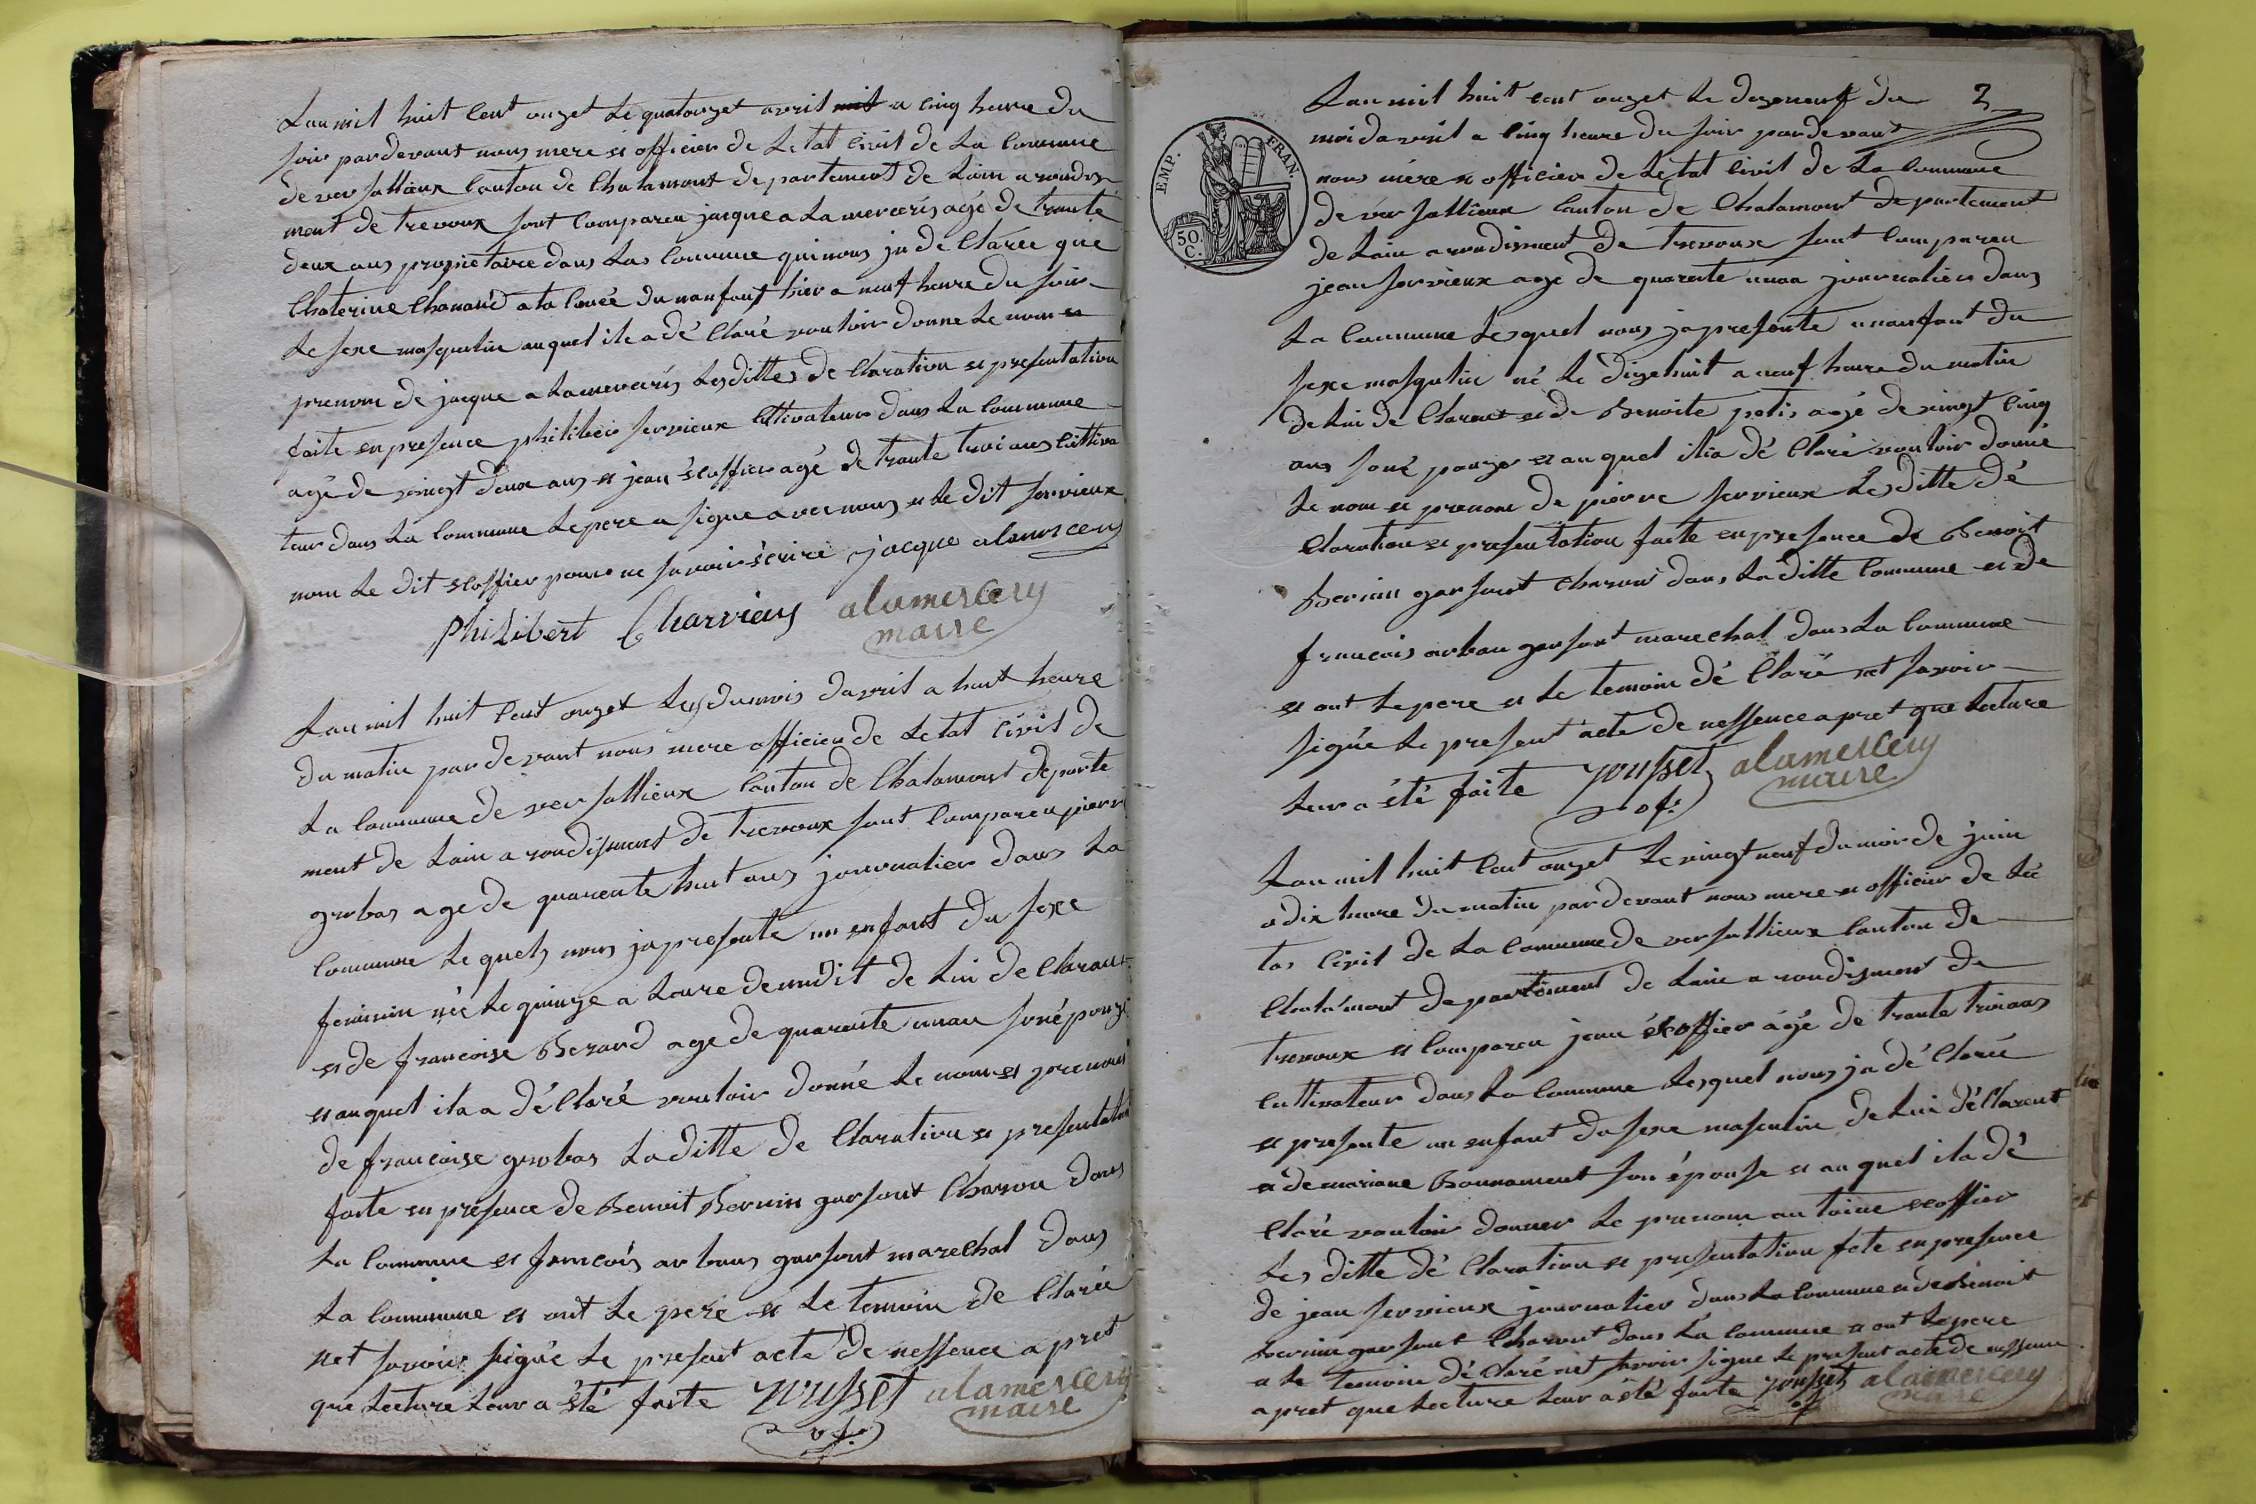 Lan mil huit cent onzet le quatorzet avril mit a cinq heure du
soir pardevant nous mere et officier de letat civil de la commune
de versallieux canton de Chalamont departement de lain arondis
ment de trevoux sont comparcu jacque alamercerij agé de trante
deux ans proprietaire dans las commune qui nous ja declarée que
Chaterine Chanard ata couée dunanfant hier a neuf heure du soir
le sexe masquelin auquel ile adé Claré voulioir donne le nom et
prenom de jacque alamercerij lesdittes de Claration et presentation
faite en presence philiber servieux Cltivateur dans la commune
agé de vingt deux ans et jean escoffier agé de trante troi ans cultiva
teur dans la commune le pere a signe avec nous et le dit servieux
nom le dit escoffier pour ne savoir écrire jacque alamercery
Philibert Charvieux alamercery
maire
Lan mil huit cent onzet les dumois davril a huit heure
du matin pardevant nous mere officier de letat civil de
la commune de versallieux canton de Chalamont departe
ment de lain arondisment de trevoux sont comparcu pierre
grobas age de quarente huit ans journalier dans la
commune lequels nous japresente un enfant du sexe
feminin née le quinze a leure demidit de lui de Clarant
et de francoise Berard age de quarante unan soné pouze
et auquel ila a dé Claré vouloir donné le nom et prenom
de francoise grobas laditte de Claration et presentation
faite en presence de Benoit Bernin garsont Charon dans
la commune et francois arbans garsont marechal dans
la commune et ont le pere et le temoin de Clarée
net savoir signée le presant acte de nessence apret
que lecture leur a été faite Yousset alamercery
off: maire
2
Lan mil huit cent onzet le dozeneuf du
moi davril a cinq heure du soir pardevant
nous mére et officier de letat civil de la commune
de versallieux canton de Chalamont departement
de lain arondisment de trevoux sont comparcu
jean servieux age de quarente unan journalier dans
la commune lesquel nous japresente unanfant du
sexe masqulin né le dizehuit a neuf heure du matin
de lui de Clarant et de Benoite petis agé de vingt cinq
ans soné pouze et auquel ilia dé Claré vouloir donné
le nom et prenom de pierre servieux les ditte dé
Claration et presentation faite en presence de Benoit
Bernin garsont Charon dans laditte commune et de
francois arban garsont marechal dans la commune
et ont le pere et le temoin dé Claré net savoir
signée le present acte de nessence apret que lecture
leur a été faite Yousset alamercery
off: maire
Lan mil huit cent onzet le vingt neuf du moi de juin
a dix heure du matin pardevant nous mere et officier de lé
tas civil de la commune de versallieux canton de
Chalamont departement de lain arondisment de
trevoux et comparcu jean éscoffier ágé de trante troi ans
cultivateur dans la commune lesquel nous ja dé Clarée
et presente un enfant du sexe masculin de lui dé Clarent
et de mariane Bonnament son épouse et au quel ila dé
Claré vouloir donner le prenom antoine escoffier
les ditte dé Claration et presentation fete en presence
de jean servieux journalier dans la commune et de Benoit
Bernin garsont Charont dans la commune et ont le pere
et le temoin dé Claré net savoir signe le presant acte de nessence
apret que lecture leur a été faite Yousset alamercery
off maire
EMP. FRAN.
50.
C.